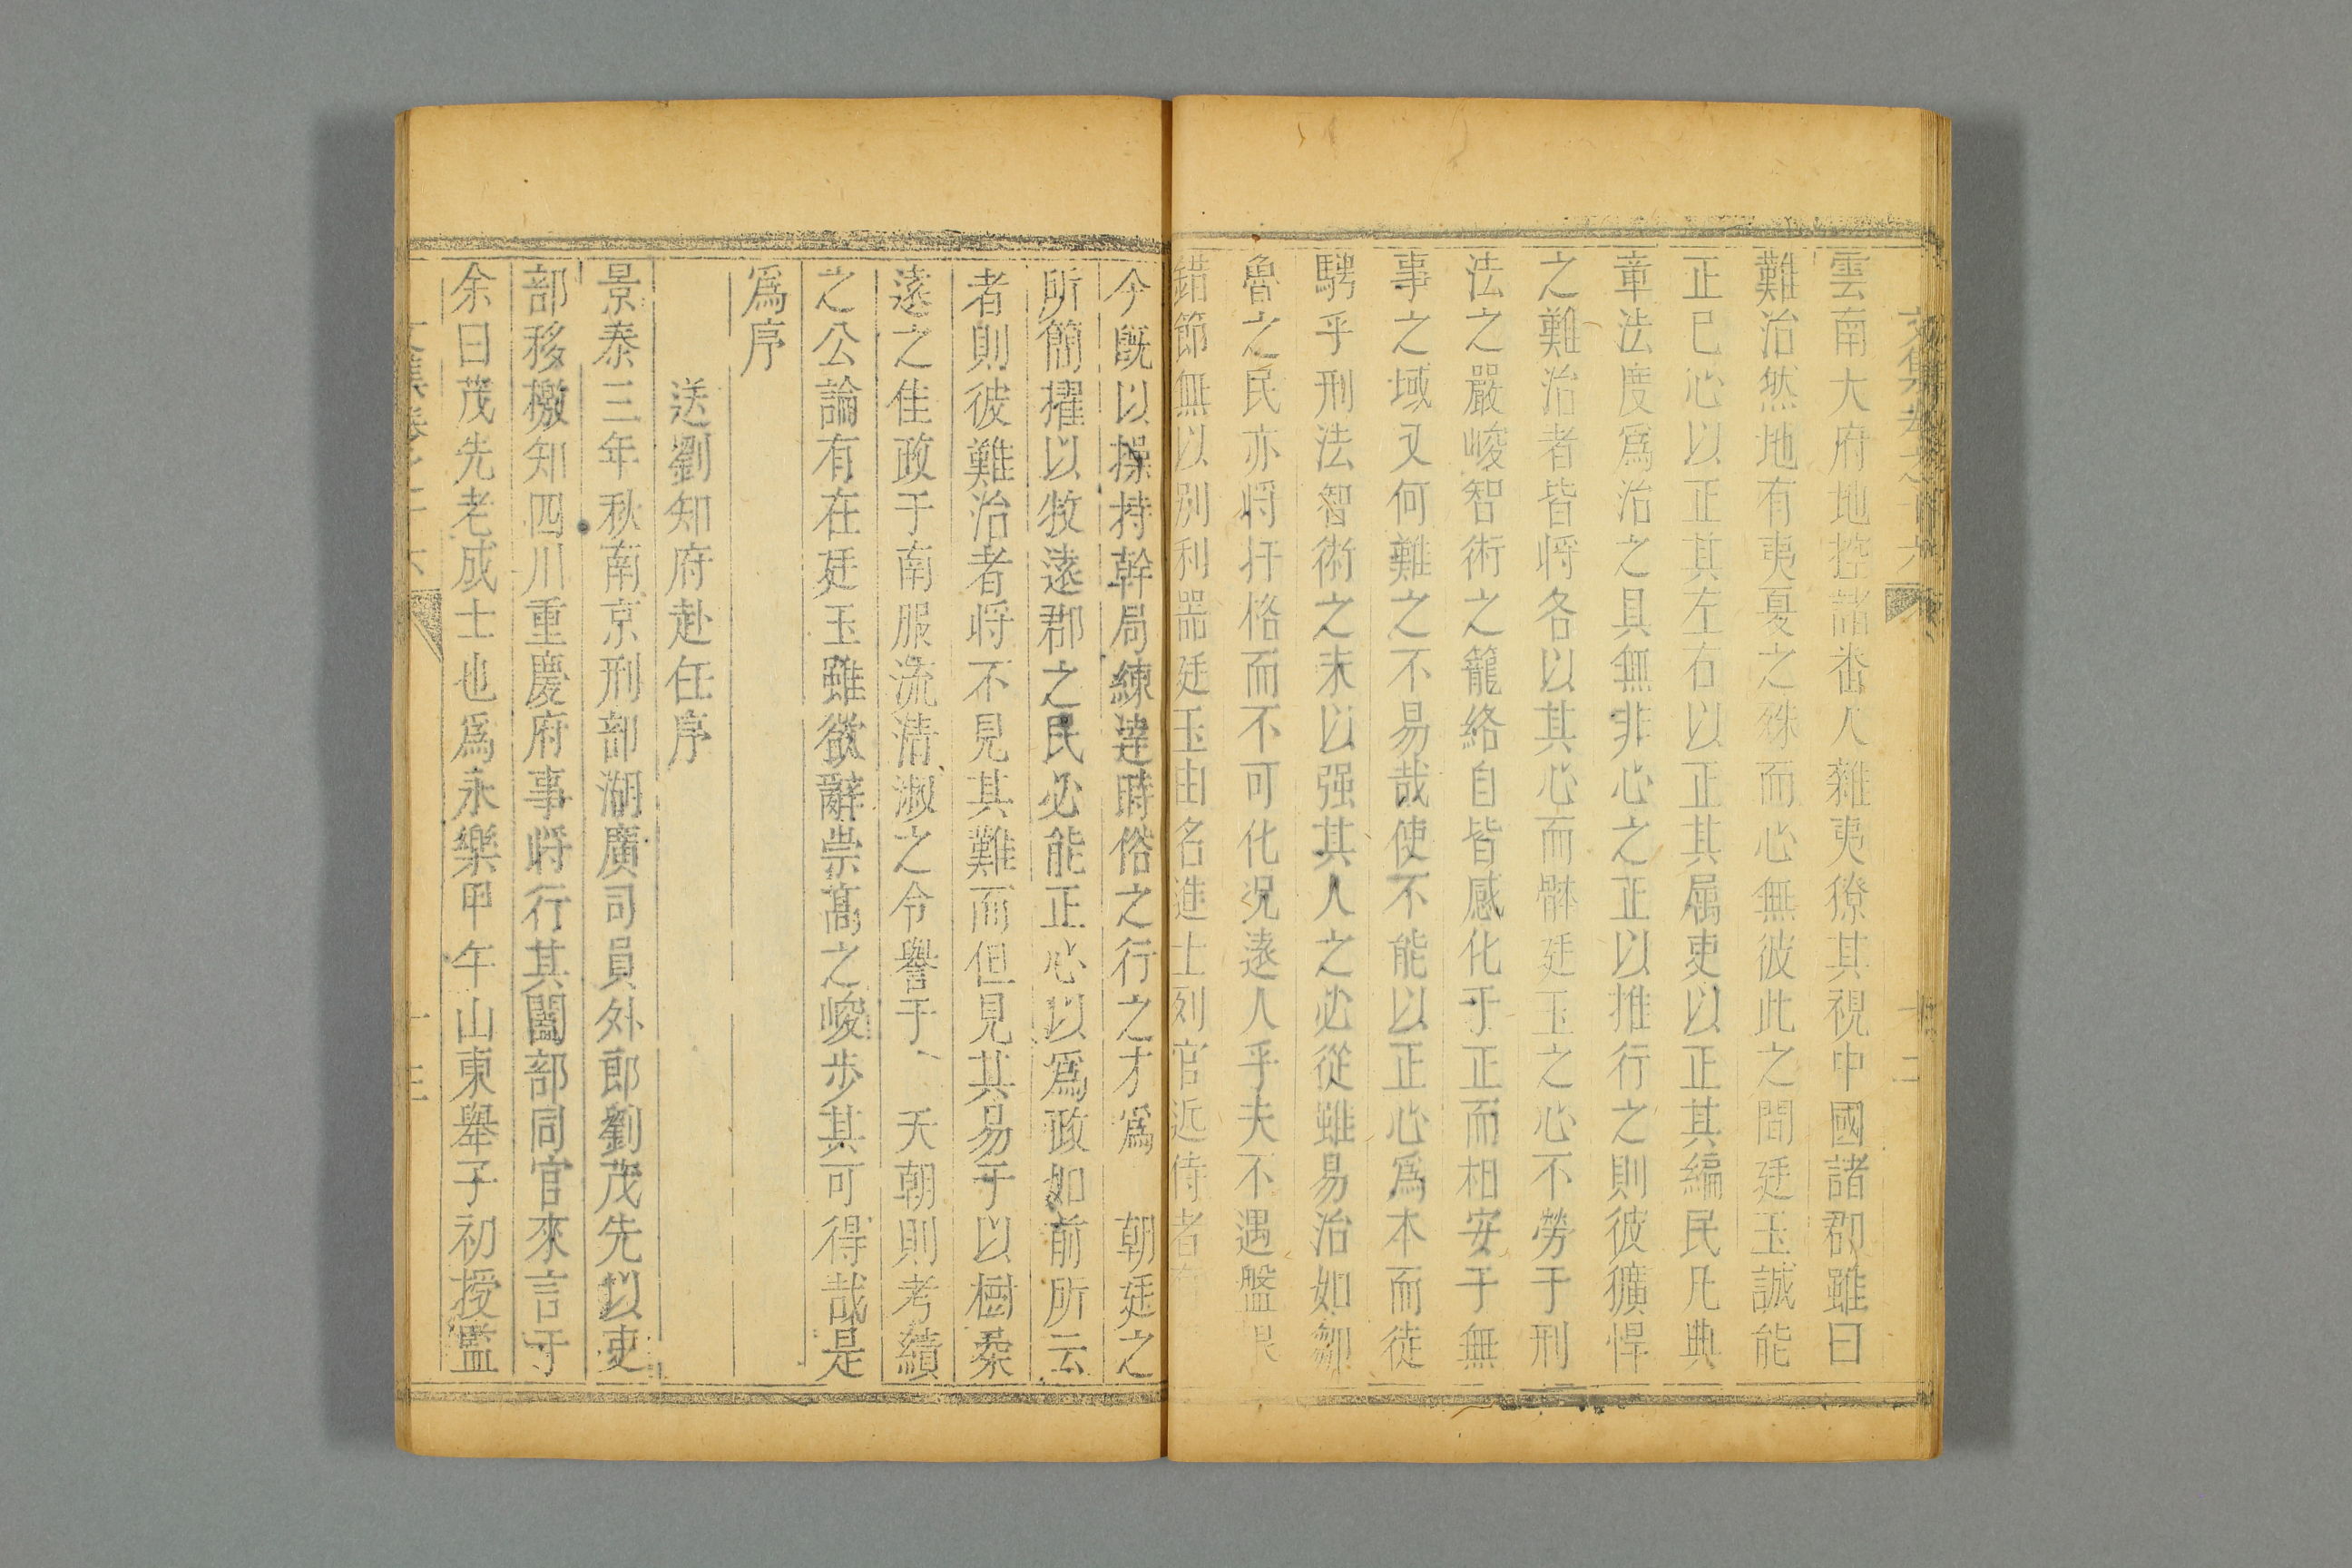 雲南大府地控諸畨人雜夷獠其視中國諸郡雖曰
難治然地有夷夏之殊而心無彼此之間廷玉誠能
正已心以正其左右以正其屬吏以正其編民凡典
章法度爲治之具無非心之正以推行之則彼獷悍
之難治者皆将各以其心而體廷玉之心不勞于刑
法之嚴峻智術之籠絡自皆感化于正而相安于無
事之域又何難之不易哉使不能以正心爲本而徒
騁乎刑法智術之末以强其人之必從雖易治如鄒
魯之民亦将扞格而不可化况逺人乎夫不遇盤根
錯節無以别利噐廷玉由名進士列官近侍者
今旣以操持幹局練達時俗之行之才爲　朝廷之
所簡擢以牧逺郡之民必能正心以爲政如前所云
者則彼難治者将不見其難而但見其易于以樹桑
逺之佳政于南服流清淑之令譽于　天朝則考績
之公論有在廷玉雖欲辭崇髙之峻步其可得哉是
爲序
送劉知府赴任序
景泰三年秋南京刑部湖廣司員外郎劉茂先以吏
部移檄知四川重慶府事将行其闔部同官來言于
余曰茂先老成士也爲永樂甲午山東舉子初授監